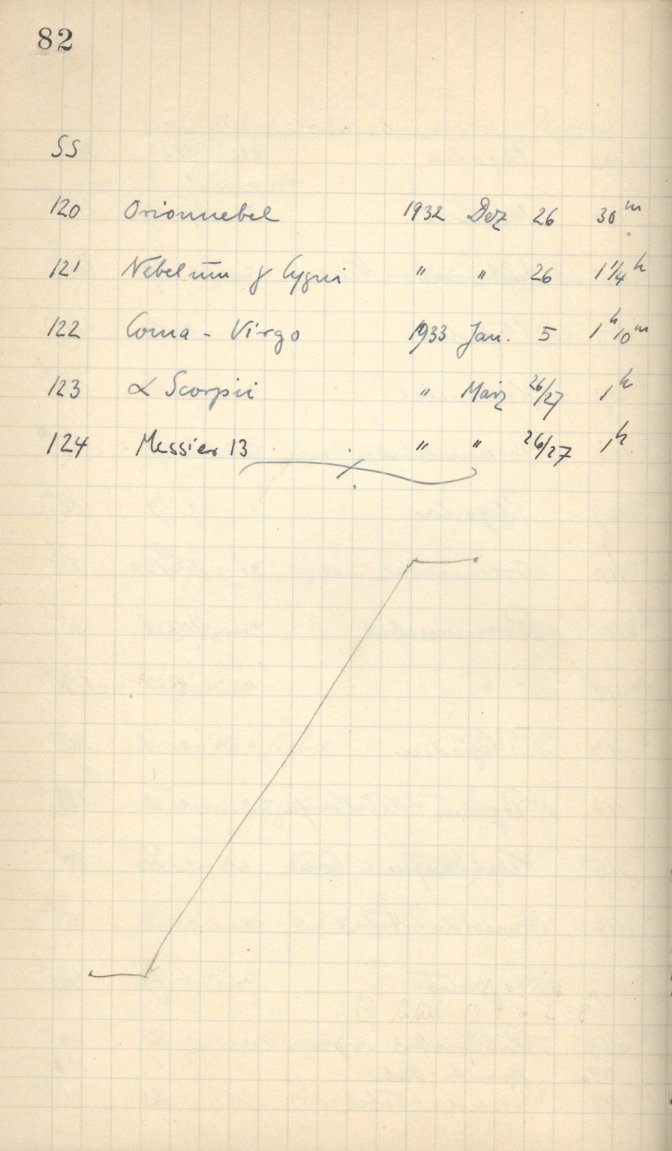 82
SS
120 Orionnebel 1932 Dez 26 30ᵐ
121 Nebel um γ Cygni " " 26 1 1/4ʰ
122 Coma - Virgo 1933 Jan. 5 1ʰ10ᵐ
123 α Scorpii " März 26/27 1ʰ
124 Messier 13 " " 26/27 1ʰ